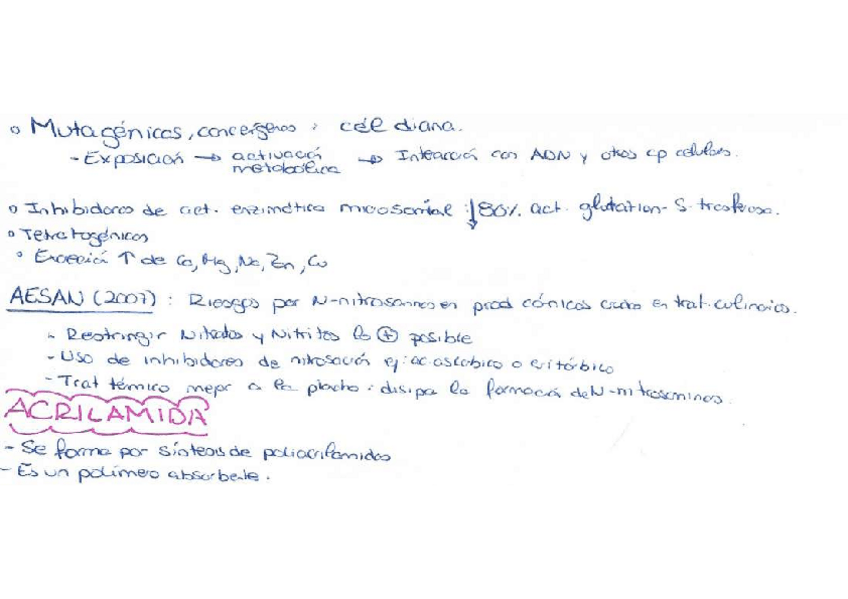 o Mutagénicos, cancerígenos : cél diana.
- Exposición → activación metabólica → Interacción con ADN y otros cp celulares.
o Inhibidores de act. enzimática microsomial : ↓ 80% act. glutation-S-trasferasa.
o Teratogénicos
o Excreción ↑ de Ca, Mg, Na, Zn, Cu
AESAN (2007) : Riesgos por N-nitrosaminas en prod cárnicos crudos en trat. culinarios.
- Restringir Nitratos y Nitritos lo ⊕ posible
- Uso de inhibidores de nitrosación ej: ac. ascórbico o eritórbico
- Trat térmico mejor a la plancha : disipa la formación de N-nitrosaminas.
ACRILAMIDA
- Se forma por síntesis de poliacrilamidas
- Es un polímero absorbente.